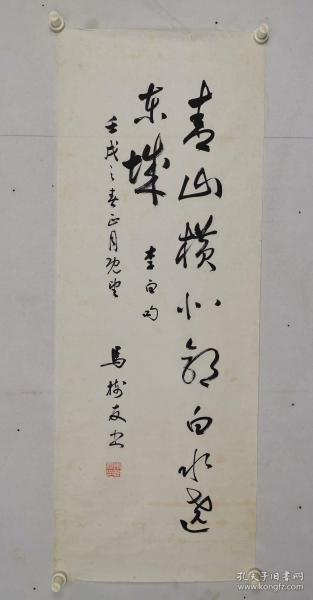 青山横北郭白水遶
东城
李白句
壬戌之春正月既望
马树友书
孔夫子旧书网